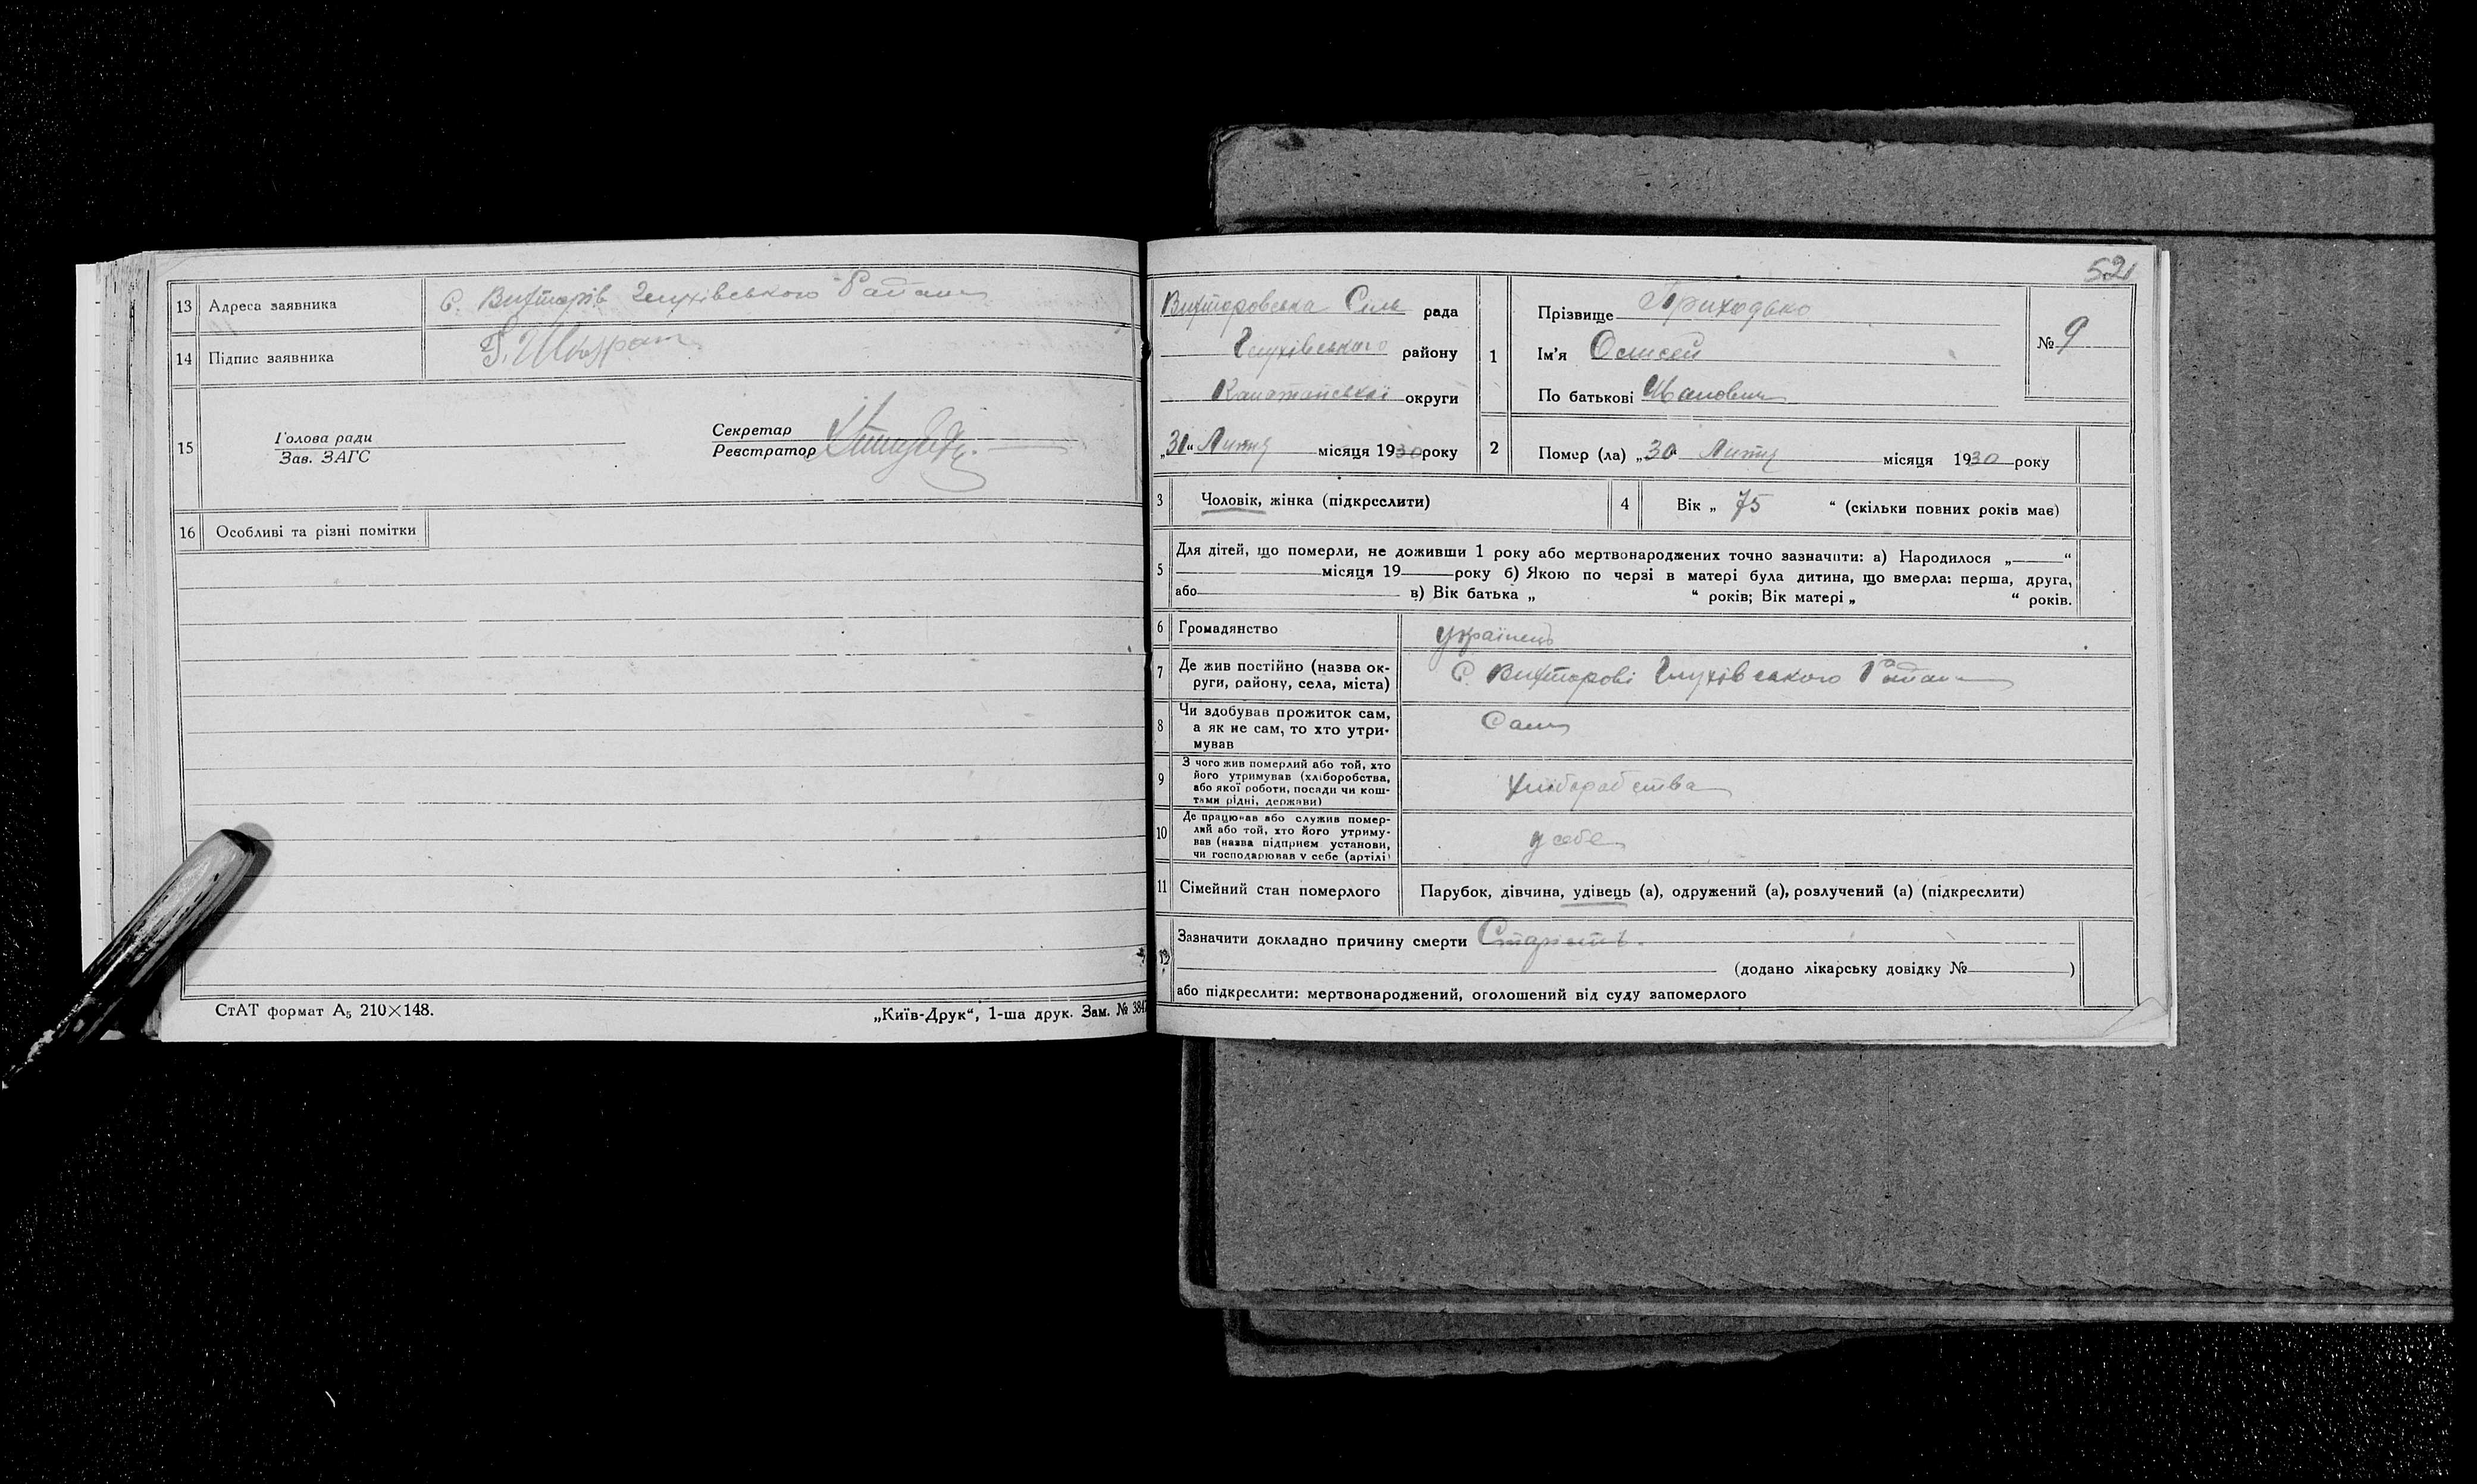 13 Адреса заявника с. Вихторів Глухівського Району
14 Підпис заявника
15 Голова ради
Зав. ЗАГС
Секретар
Реєстратор
16 Особливі та різні помітки
СтАТ формат А₅ 210×148.
„Київ-Друк“, 1-ша друк. Зам. № 3847
52
Вихторовська Сіль рада
Глухівського району
округи
„30“ Лютня місяця 1930 року
1 Прізвище Приходько
Ім'я Олисей
По батькові Иванович
№ 9
2 Помер (ла) „30“ Лютня місяця 1930 року
3 Чоловік, жінка (підкреслити)
4 Вік „ 75 “ (скільки повних років має)
5 Для дітей, що померли, не доживши 1 року або мертвонароджених точно зазначити: а) Народилося „ “
місяця 19 року б) Якою по черзі в матері була дитина, що вмерла: перша, друга,
або в) Вік батька „ “ років; Вік матері „ “ років.
6 Громадянство українець
7 Де жив постійно (назва ок-
руги, району, села, міста) с. Вихторові Глухівського Району
8 Чи здобував прожиток сам,
а як не сам, то хто утри-
мував Сам
9 З чого жив померлий або той, хто
його утримував (хліборобства,
або якої роботи, посади чи кош-
тами рідні, держави) хліборобства
10 Де працював або служив помер-
лий або той, хто його утриму-
вав (назва підприєм установи,
чи господарював у себе (артілі) у себе
11 Сімейний стан померлого Парубок, дівчина, удівець (а), одружений (а), розлучений (а) (підкреслити)
12 Зазначити докладно причину смерти Старість.
(додано лікарську довідку № )
або підкреслити: мертвонароджений, оголошений від суду запомерлого